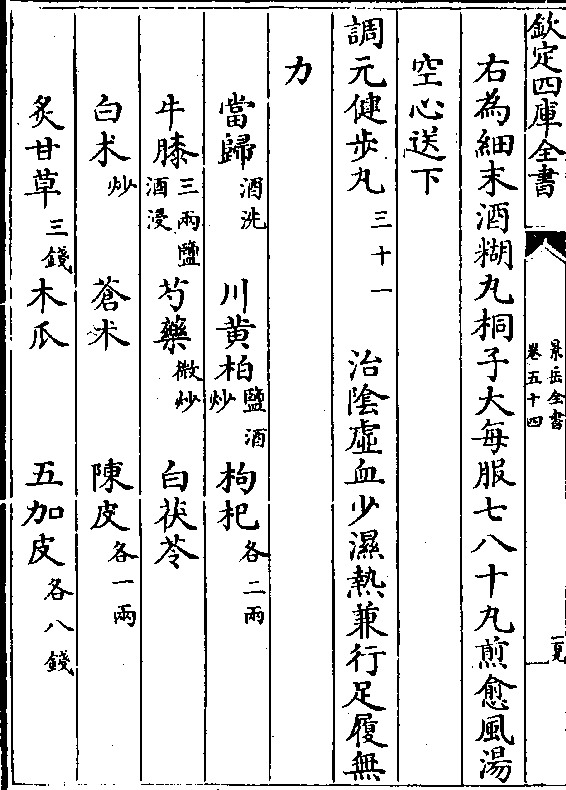 欽定四庫全書
景岳全書
卷五十四
右為細末酒糊丸桐子大每服七八十丸煎愈風湯
空心送下
調元健步丸三十一 治陰虛血少濕熱兼行足履無
力
當歸酒洗 川黃柏鹽酒炒 枸杞各二兩
牛膝三兩鹽酒浸 芍藥微炒 白茯苓
白朮炒 蒼朮 陳皮各一兩
炙甘草三錢 木瓜 五加皮各八錢